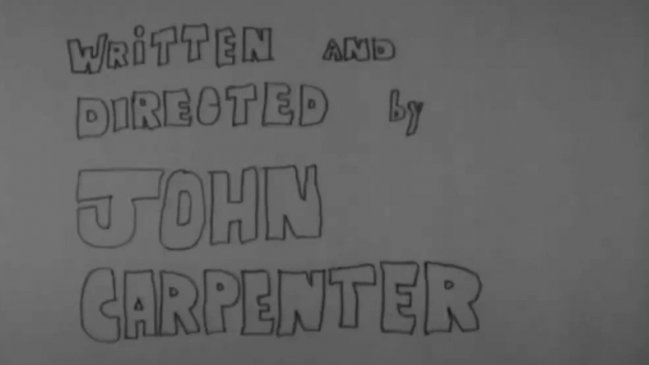 WRiTTEN AND
DIRECTED by
JOHN
CARPENTER